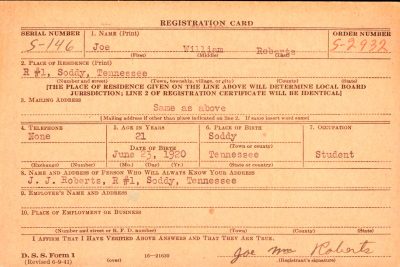 REGISTRATION CARD
SERIAL NUMBER 1. NAME (Print) ORDER NUMBER
S-146 Joe William Roberts S-2932
(First) (Middle) (Last)
2. PLACE OF RESIDENCE (Print)
R #1, Soddy, Tennessee
(Number and street) (Town, township, village, or city) (County) (State)
[THE PLACE OF RESIDENCE GIVEN ON THE LINE ABOVE WILL DETERMINE LOCAL BOARD
JURISDICTION; LINE 2 OF REGISTRATION CERTIFICATE WILL BE IDENTICAL]
3. MAILING ADDRESS
Same as above
[Mailing address if other than place indicated on line 2. If same insert word same]
4. TELEPHONE 5. AGE IN YEARS 6. PLACE OF BIRTH 7. OCCUPATION
None 21 Soddy
DATE OF BIRTH (Town or county)
June 23, 1920 Tennessee Student
(Exchange) (Number) (Mo.) (Day) (Yr.) (State or country)
8. NAME AND ADDRESS OF PERSON WHO WILL ALWAYS KNOW YOUR ADDRESS
J. J. Roberts, R #1, Soddy, Tennessee
9. EMPLOYER'S NAME AND ADDRESS
10. PLACE OF EMPLOYMENT OR BUSINESS
(Number and street or R. F. D. number) (Town) (County) (State)
I AFFIRM THAT I HAVE VERIFIED ABOVE ANSWERS AND THAT THEY ARE TRUE.
D. S. S. Form 1 Joe Wm Roberts
(Revised 6-9-41) (over) 16—21630 (Registrant's signature)